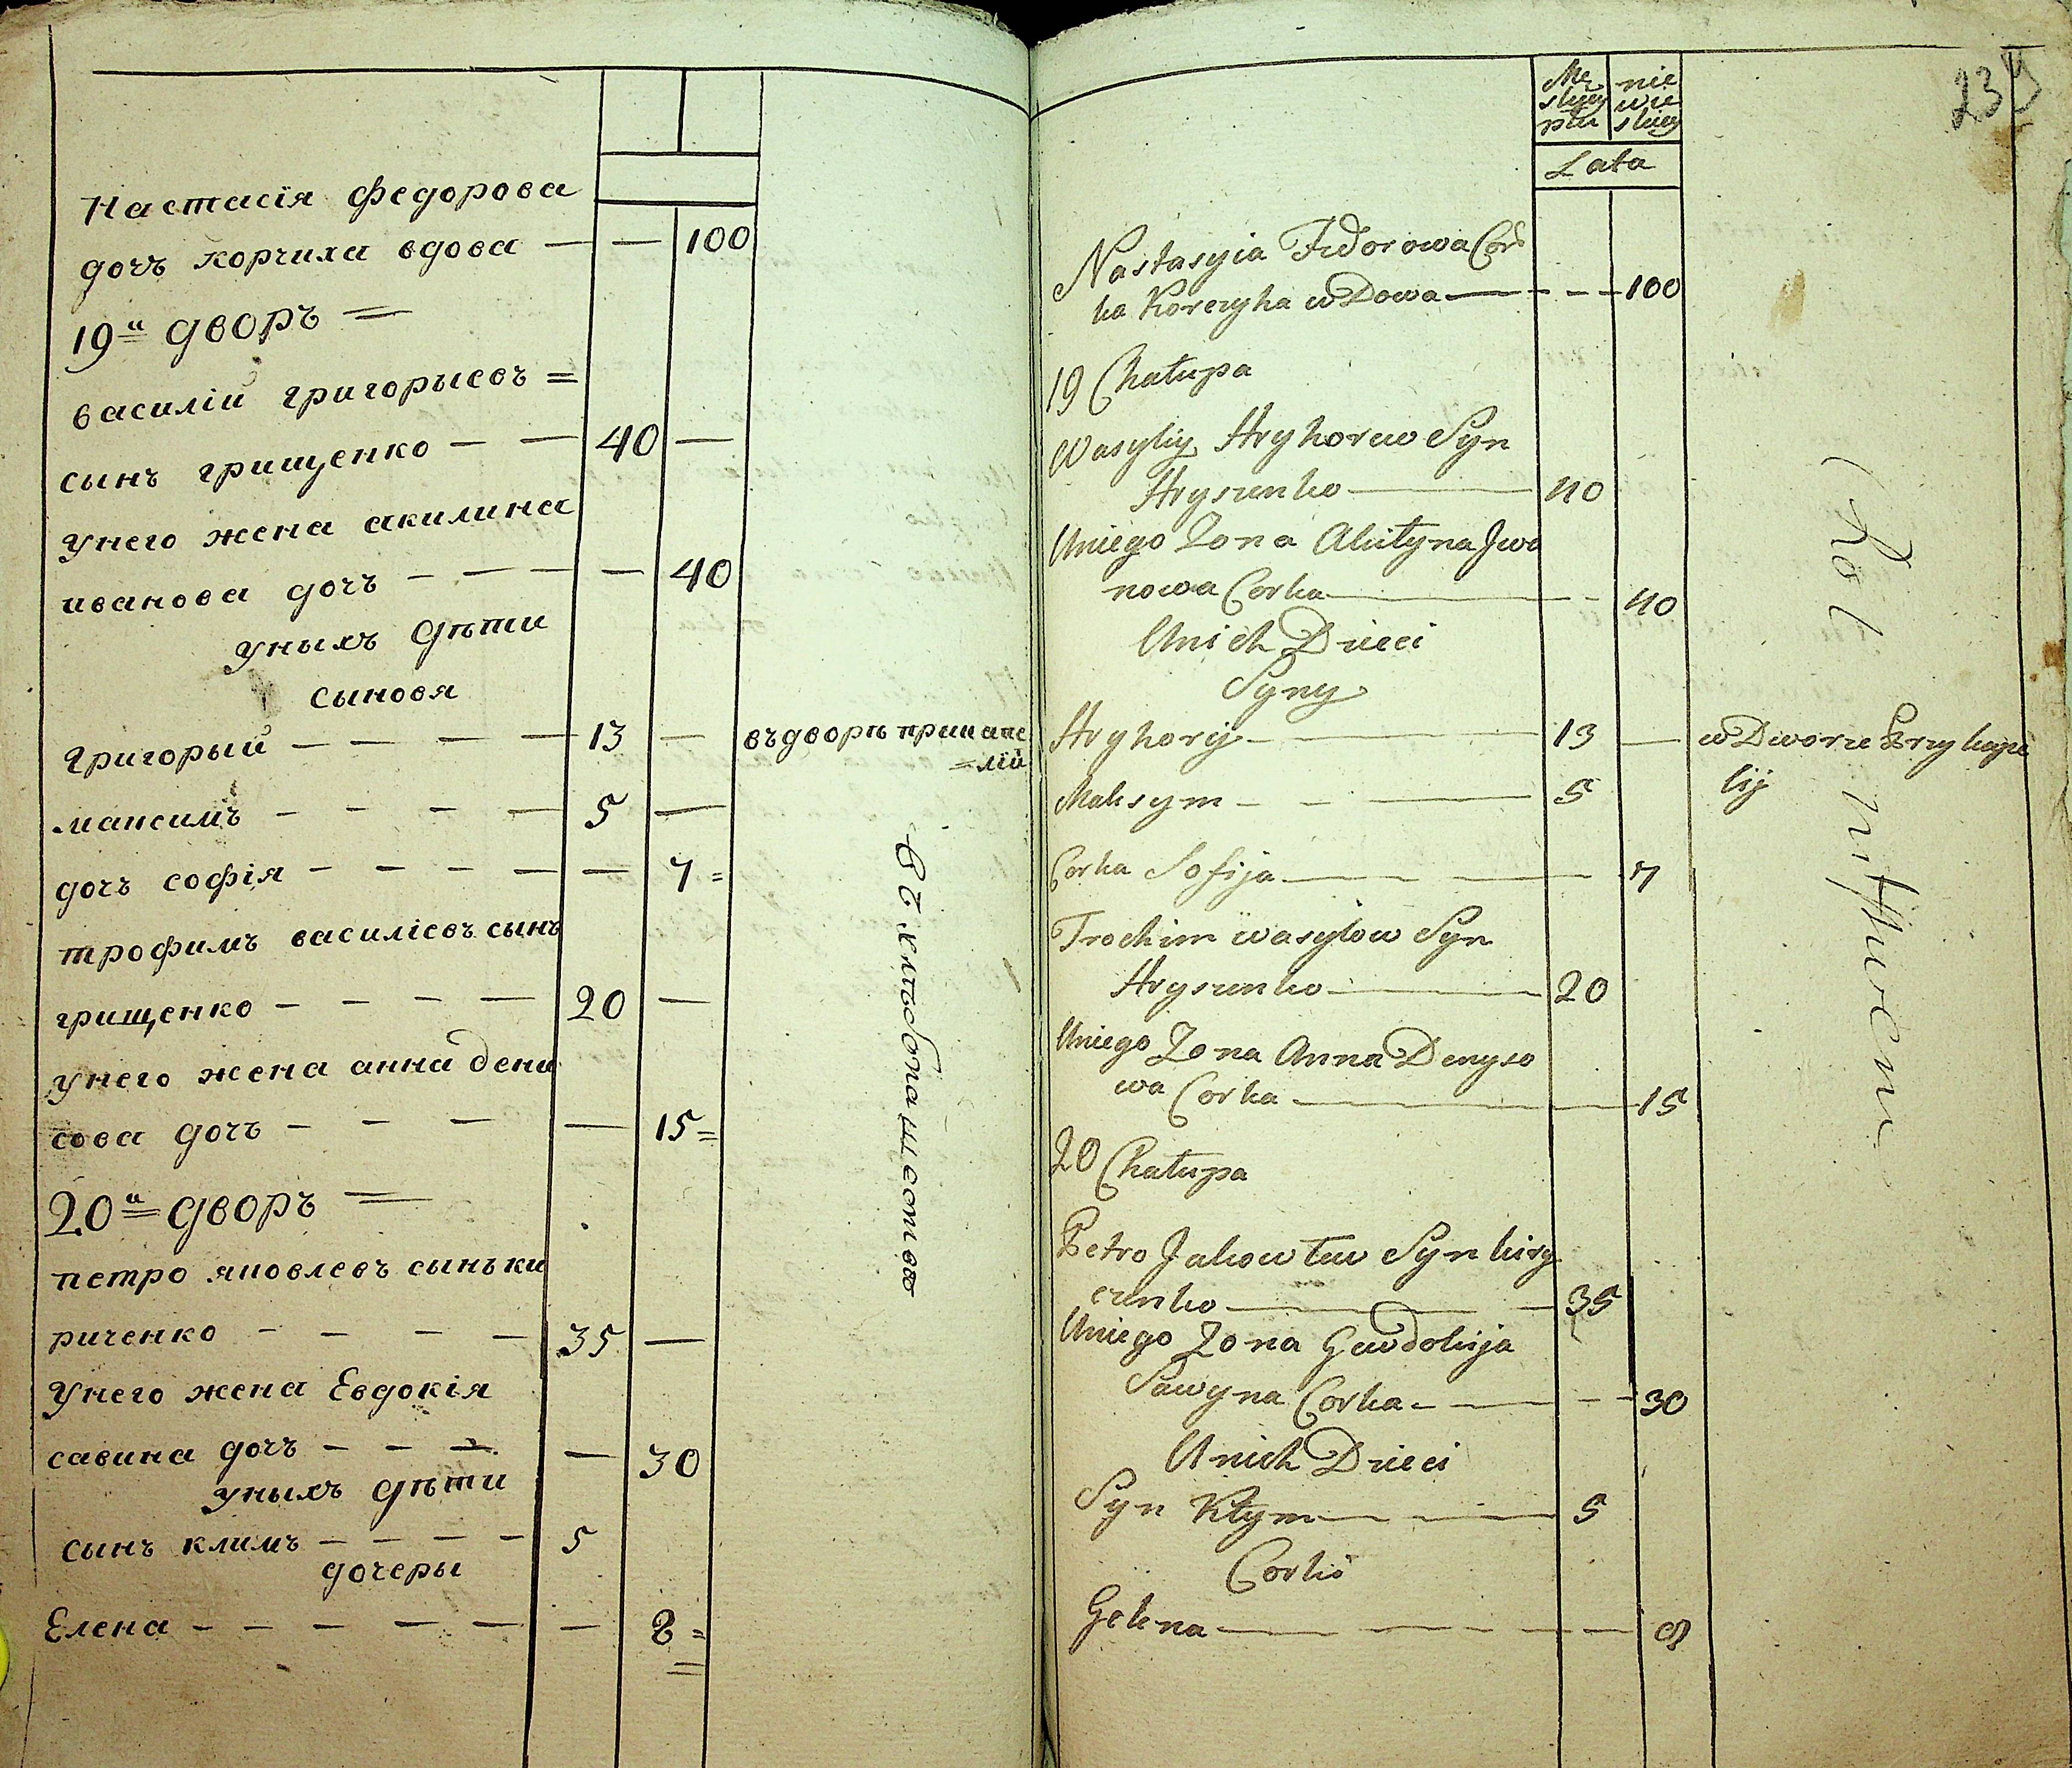 Настасія федорова
дочъ корчиха вдова — — 100
19й дворъ =
василій григорьевъ =
сынъ грищенко — — 40 —
унего жена акилина
иванова дочъ — — — — 40
уныхъ дѣти
сыновя
григорый — — — — 13 — въдворѣ прикапе
=лій
максимъ — — — — 5 —
дочъ софія — — — — — 7 =
трофимъ василіевъ сынъ
грищенко — — — — 20 —
унего жена анна дени
сова дочъ — — — — 15 =
20й дворъ =
петро яковлевъ сынъ ки
риченко — — — — 35 —
унего жена Евдокія
савина дочъ — — — — 30
уныхъ дѣти
сынъ климъ — — — — 5
дочеры
Елена — — — — — — 8 =
хлѣбопашество
234
Mę nie
skiey wie
płci skiey
Lata
Nastasyia Fedorowa Cor
ka Korczyha wDowa — — — 100
19 Chałupa
Wasyliy Hryhorew Syn
Hryszenko — 40
Uniego Zona Akiłyna Jwa
nowa Corka — — 40
Unich Dzieci
Syny
Hryhorij — 13 — wDworze Przy kape
lij
Maksym — — — 5
Corka Sofija — — — — 7
Trochim wasylow Syn
Hryszenko — 20
Uniego Zona Anna Denyso
wa Corka — — 15
20 Chałupa
Petro Jakowlew Syn kiry
czenko — — 35
Uniego Zona Gewdokija
Sawyna Corka — — — 30
Unich Dzieci
Syn Kłym — — — 5
Corki
Gelena — — — — — 8
Rol nictwem